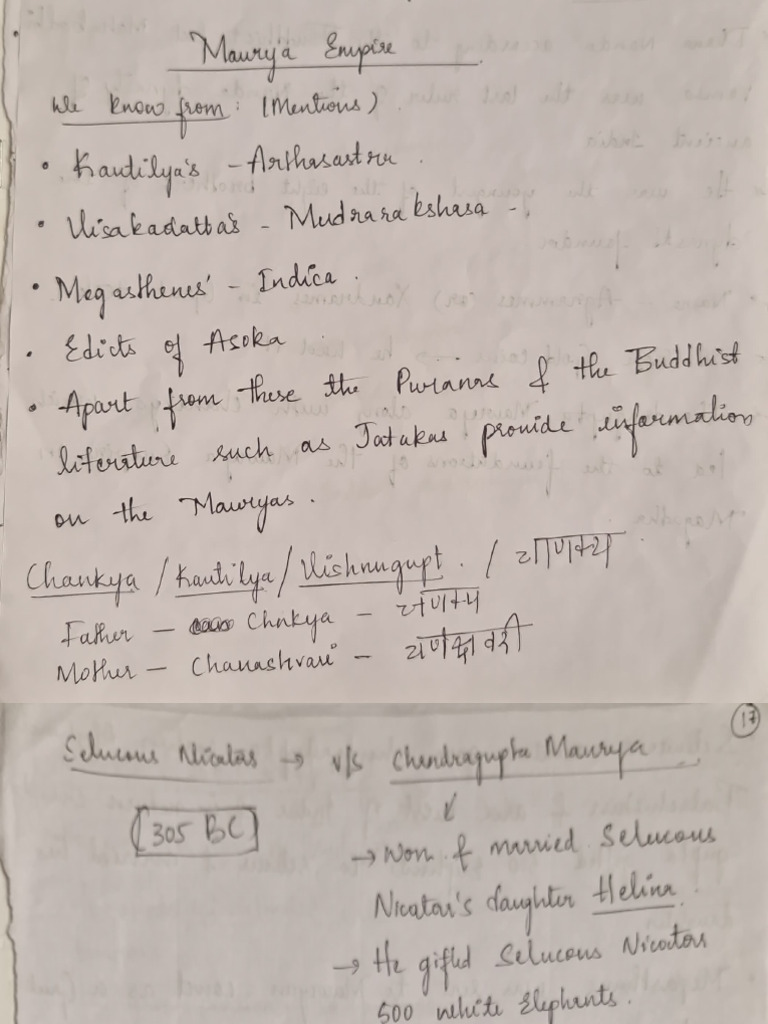 Maurya Empire
We know from: (Mentions)
• Kautilya's - Arthasastra.
• Visakadatta's - Mudrarakshasa -.
• Megasthenes' - Indica.
• Edicts of Asoka
• Apart from these the Puranas & the Buddhist
literature such as Jatakas provide information
on the Mauryas.
Chankya / Kautilya / Vishnugupt. / चाणक्य
Father - Chnkya - चणक्य
Mother - Chanashvari -
17
Selucous Nicatas → v/s Chandragupta Maurya
305 BC
→ Won & married Selucous
Nicator's daughter Helina.
→ He gifted Selucous Nicators
500 white Elephants.